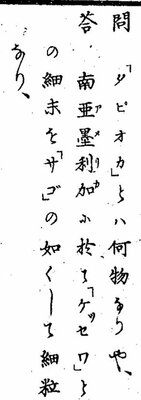 問「タピオカ」とハ何物なりや、
答．南亜墨利加に於て「ケッセワ」と
の細末を「サゴ」の如くして細粒
なり、